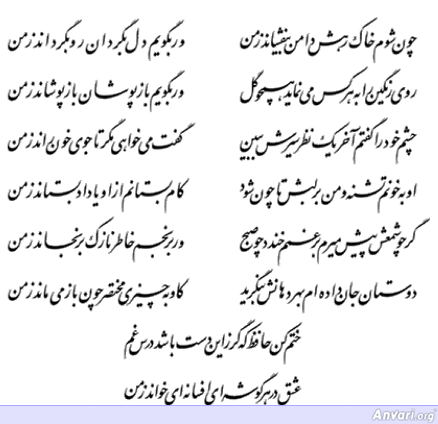 چون شوم خاک رهش دامن بیفشاند ز من
ور بگویم دل بگردان رو بگرداند ز من
روی رنگین را به هر کس می نماید همچو گل
ور بگویم باز پوشان باز پوشاند ز من
چشم خود را گفتم آخر یک نظر سیرش ببین
گفت می خواهی مگر تا جوی خون راند ز من
او به خونم تشنه و من بر لبش تا چون شود
کام بستانم از او یا داد بستاند ز من
گر چو شمعش پیش میرم بر غمم خندد چو صبح
ور برنجم خاطر نازک برنجاند ز من
دوستان جان داده ام بهر دهانش بنگرید
کاو به چیزی مختصر چون باز می ماند ز من
ختم کن حافظ که گر زین دست باشد درس غم
عشق در هر گوشه ای افسانه ای خواند ز من
Anvari.org